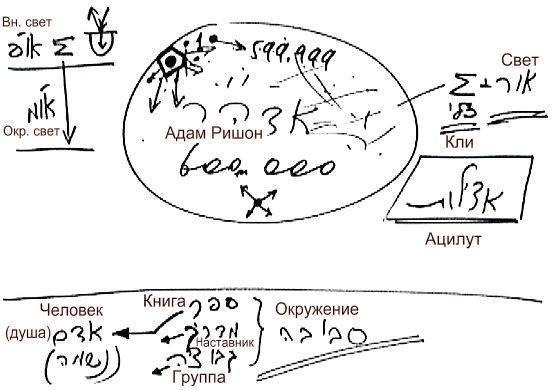 Вн. свет
או"פ Σ
599.999
Свет
אור = Σ
או"מ
Окр. свет
Адам Ришон
600.000
כלי
Кли
אצילות
Ацилут
Человек
Книга
ספר
Окружение
(душа)
אדם
מדריך
Наставник
סביבה
(נשמה)
קבוצה
Группа